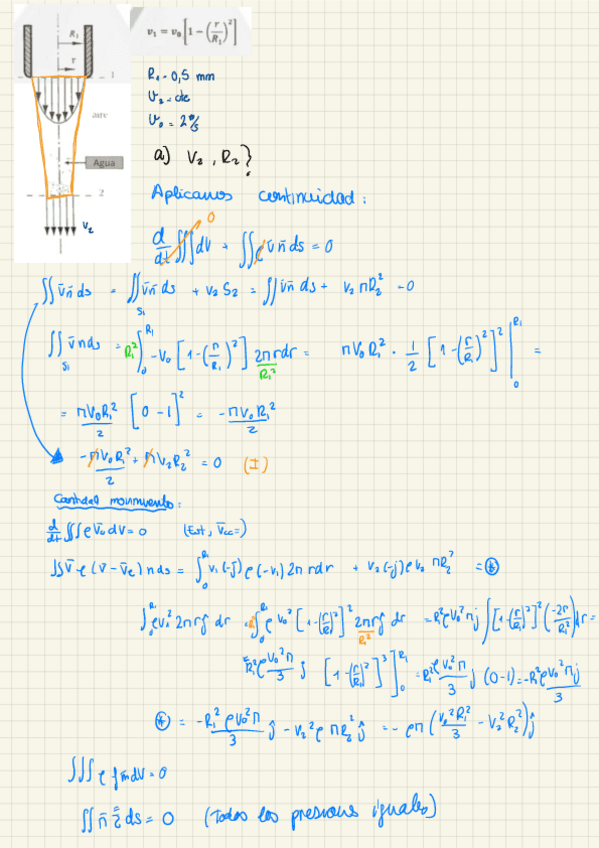 R₁
r
1
aire
Agua
2
v₂
v₁ = v₀[1 - (r/R₁)²]
R₁ = 0,5 mm
V₂ = cte
V₀ = 2 m/s
a) V₂, R₂?
Aplicamos continuidad:
d/dt ∭ dV + ∬ ρ v̄ n̄ ds = 0
0
∬ v̄ n̄ ds = ∬_S₁ v̄ n̄ ds + v₂ S₂ = ∬ v̄ n ds + v₂ π R₂² = 0
∬_S₁ v̄ n ds = R₁² ∫₀^R₁ -v₀ [1 - (r/R₁)²] 2π r dr / R₁² = π v₀ R₁² · 1/2 [1 - (r/R₁)²]² |₀^R₁ =
= π v₀ R₁² / 2 [0 - 1]² = - π v₀ R₁² / 2
- π v₀ R₁² / 2 + π v₂ R₂² = 0 (I)
Cantidad movimiento:
d/dt ∭ ρ v̄ dV = 0 (Est,
∬ v̄ ρ (v̄ - v̄c) n ds = ∫₀^R₁ v₁(-j̄) ρ (-v₁) 2π r dr + v₂ (-j) ρ v₂ π R₂² = ⊛
∫₀^R₁ ρ v₁² 2π r j dr = R₁² ∫₀^R₁ ρ v₀² [1 - (r/R₁)²]² 2π r j / R₁² dr = -R₁² ρ v₀² π j ∫ [1 - (r/R₁)²]² (-2r/R₁²) dr =
= -R₁² ρ v₀² π / 3 j [1 - (r/R₁)²]³ ]₀^R₁ = R₁² ρ v₀² π / 3 j (0 - 1) = -R₁² ρ v₀² π j / 3
⊛ = - R₁² ρ v₀² π / 3 j - v₂² ρ π R₂² j = - ρ π (v₀² R₁² / 3 - v₂² R₂²) j
∭ ρ f̄m dV = 0
∬ n̄ ds = 0 (Todas las presiones iguales)